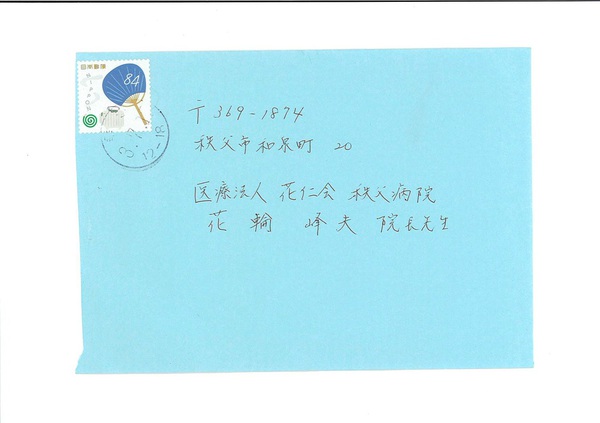 日本郵便
84
〒369-1874
秩父市和泉町 20
医療法人 花仁会 秩父病院
花輪 峰夫 院長先生
12-18